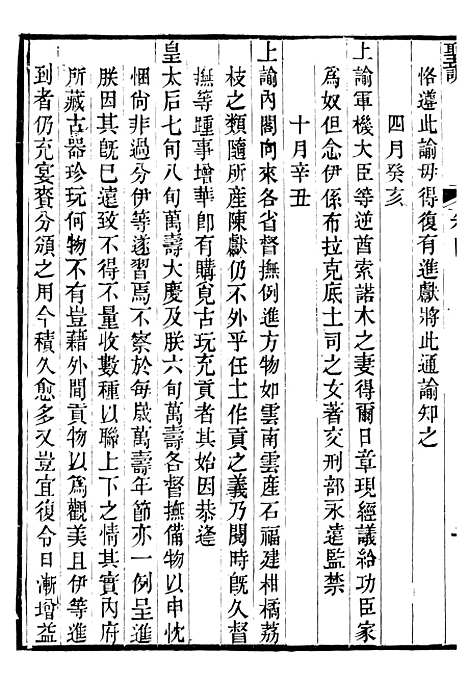 恪遵此諭毋得復有進獻將此通諭知之
四月癸亥
上諭軍機大臣等逆酋索諾木之妻得爾日章現經議給功臣家
爲奴但念伊係布拉克底土司之女著交刑部永遠監禁
十月辛丑
上諭內閣向來各省督撫例進方物如雲南雲產石福建柑橘荔
枝之類隨所產陳獻仍不外乎任土作貢之義乃閱時旣久督
撫等踵事增華卽有購覓古玩充貢者其始因恭逢
皇太后七旬八旬萬壽大慶及朕六旬萬壽各督撫備物以申忱
悃尙非過分伊等遂習焉不察於每歲萬壽年節亦一例呈進
朕因其旣已遠致不得不量收數種以聯上下之情其實內府
所藏古器珍玩何物不有豈藉外間貢物以爲觀美且伊等進
到者仍充宴賚分頒之用今積久愈多又豈宜復令日漸增益